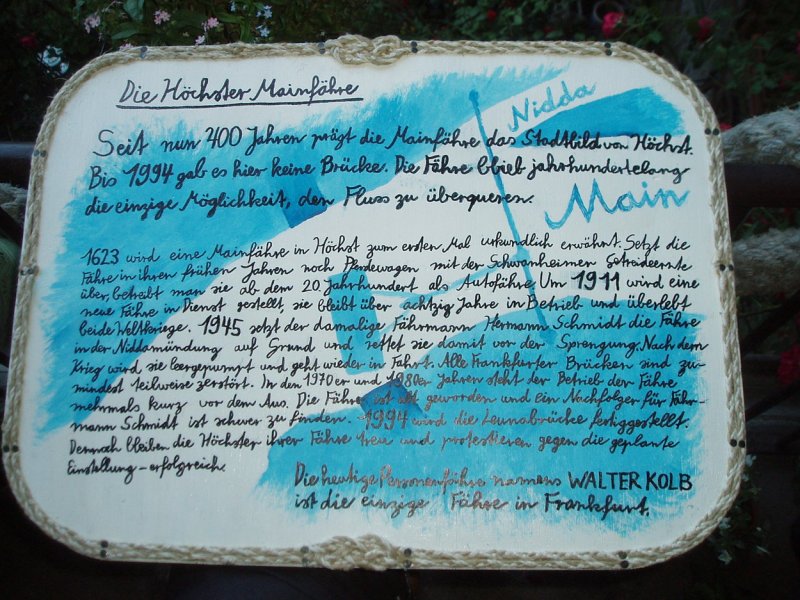 Die Höchster Mainfähre
Nidda
Main
Seit nun 400 Jahren prägt die Mainfähre das Stadtbild von Höchst.
Bis 1994 gab es hier keine Brücke. Die Fähre blieb jahrhundertelang
die einzige Möglichkeit, den Fluss zu überqueren.
1623 wird eine Mainfähre in Höchst zum ersten Mal urkundlich erwähnt. Setzt die
Fähre in ihren frühen Jahren noch Pferdewagen mit der Schwanheimer Getreideernte
über, betreibt man sie ab dem 20. Jahrhundert als Autofähre. Um 1911 wird eine
neue Fähre in Dienst gestellt, sie bleibt über achtzig Jahre in Betrieb und überlebt
beide Weltkriege. 1945 setzt der damalige Fährmann Hermann Schmidt die Fähre
in der Niddamündung auf Grund und rettet sie damit vor der Sprengung. Nach dem
Krieg wird sie leergepumpt und geht wieder in Fahrt. Alle Frankfurter Brücken sind zu-
mindest teilweise zerstört. In den 1970er und 1980er Jahren steht der Betrieb der Fähre
mehrmals kurz vor dem Aus. Die Fähre ist alt geworden und ein Nachfolger für Fähr-
mann Schmidt ist schwer zu finden. 1994 wird die Leunabrücke fertiggestellt.
Dennoch bleiben die Höchster ihrer Fähre treu und protestieren gegen die geplante
Einstellung - erfolgreich.
Die heutige Personenfähre namens WALTER KOLB
ist die einzige Fähre in Frankfurt.